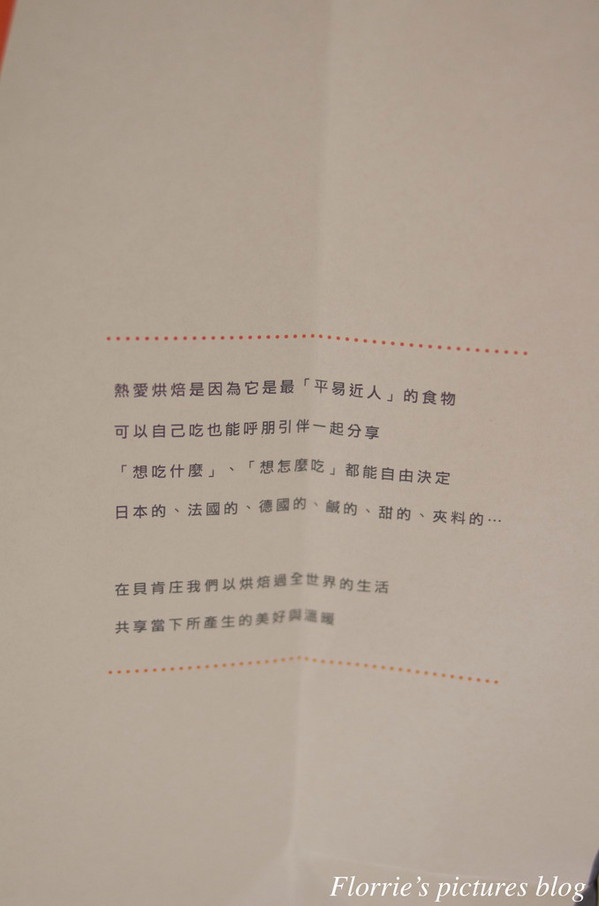 熱愛烘焙是因為它是最「平易近人」的食物
可以自己吃也能呼朋引伴一起分享
「想吃什麼」、「想怎麼吃」都能自由決定
日本的、法國的、德國的、鹹的、甜的、夾料的…
在貝肯庄我們以烘焙過全世界的生活
共享當下所產生的美好與溫暖
Florrie's pictures blog